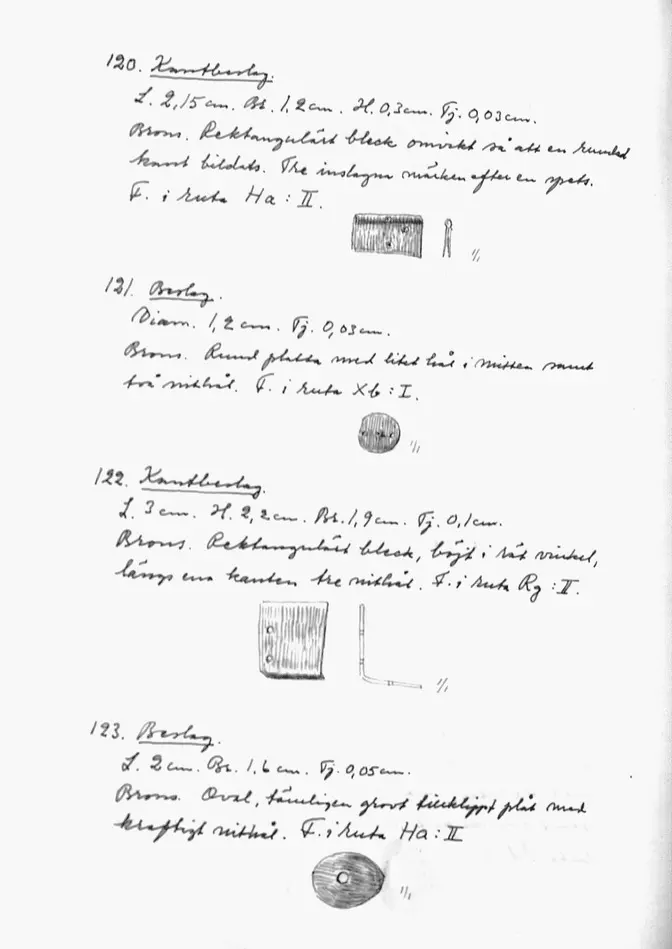 120. Kantbeslag.
L. 2,15 cm. Br. 1,2 cm. H. 0,3 cm. Tj. 0,03 cm.
Brons. Rektangulärt bleck omvikt så att en rundad
kant bildats. Tre inslagna märken efter en spets.
F. i ruta Ha : II.
1/1
121. Beslag.
Diam. 1,2 cm. Tj. 0,03 cm.
Brons. Rund platta med litet hål i mitten samt
två nithål. F. i ruta Xb : I.
1/1
122. Kantbeslag.
L. 3 cm. H. 2,2 cm. Br. 1,9 cm. Tj. 0,1 cm.
Brons. Rektangulärt bleck, böjt i rät vinkel,
längs ena kanten tre nithål. F. i ruta Rg : II.
1/1
123. Beslag.
L. 2 cm. Br. 1,6 cm. Tj. 0,05 cm.
Brons. Oval, tämligen grovt tillklippt plåt med
kraftigt nithål. F. i ruta Ha : II
1/1